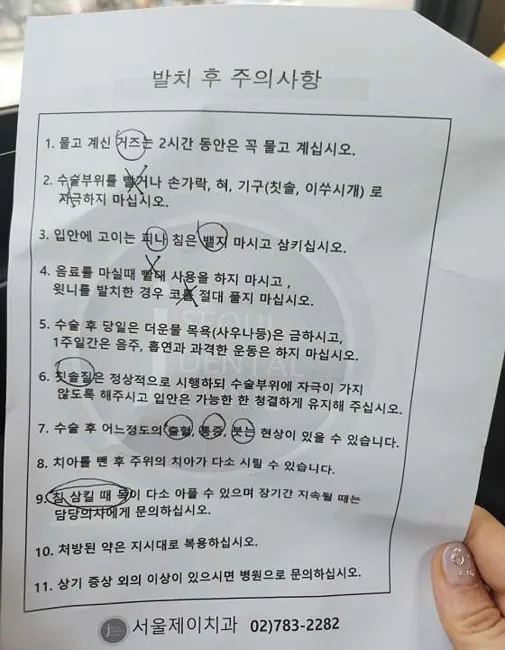 발치 후 주의사항
1. 물고 계신 거즈는 2시간 동안은 꼭 물고 계십시오.
2. 수술부위를 빨거나 손가락, 혀, 기구(칫솔, 이쑤시개) 로
자극하지 마십시오.
3. 입안에 고이는 피나 침은 뱉지 마시고 삼키십시오.
4. 음료를 마실때 빨대 사용을 하지 마시고,
윗니를 발치한 경우 코를 절대 풀지 마십시오.
5. 수술 후 당일은 더운물 목욕(사우나등)은 금하시고,
1주일간은 음주, 흡연과 과격한 운동은 하지 마십시오.
6. 칫솔질은 정상적으로 시행하되 수술부위에 자극이 가지
않도록 해주시고 입안은 가능한 한 청결하게 유지해 주십시오.
7. 수술 후 어느정도의 출혈, 통증, 붓는 현상이 있을 수 있습니다.
8. 치아를 뺀 후 주위의 치아가 다소 시릴 수 있습니다.
9. 침 삼킬 때 목이 다소 아플 수 있으며 장기간 지속될 때는
담당의사에게 문의하십시오.
10. 처방된 약은 지시대로 복용하십시오.
11. 상기 증상 외의 이상이 있으시면 병원으로 문의하십시오.
SEOUL
DENTAL
j 서울제이치과 02)783-2282